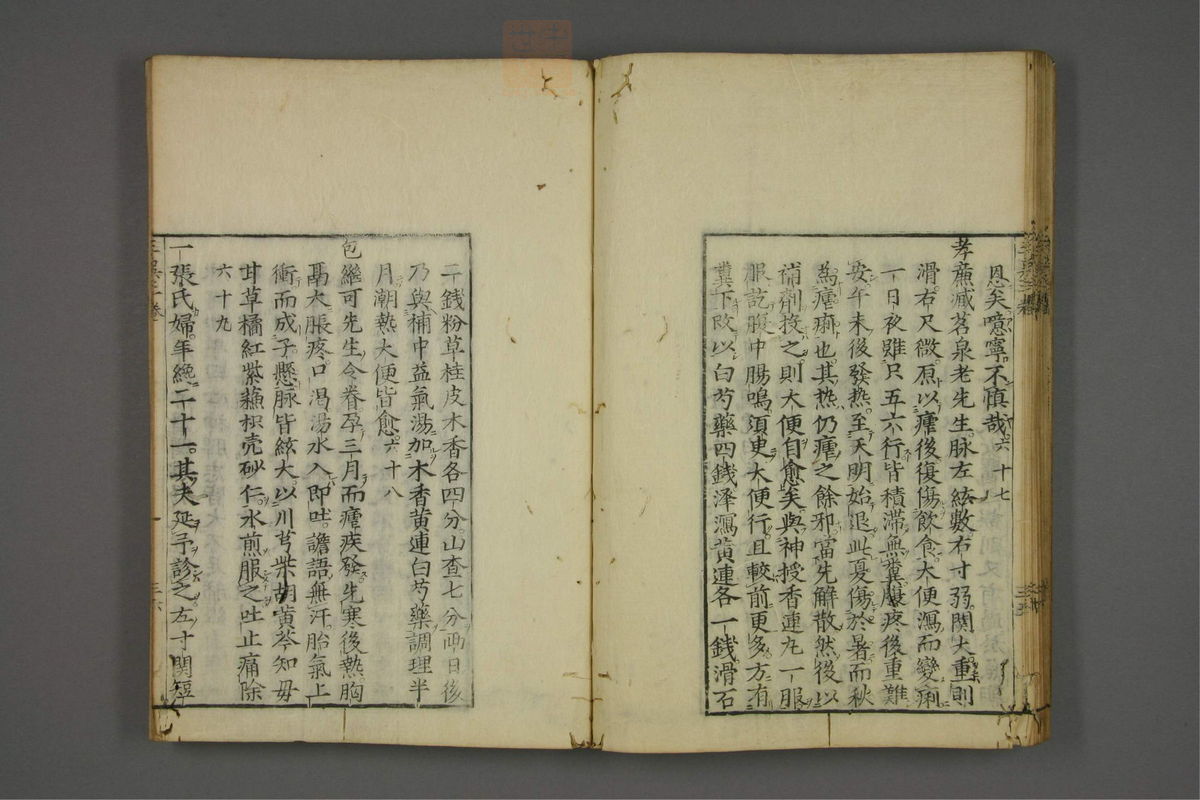 恩矣噫寧不慎哉六十七
孝廉臧茗泉老先生脉左絃數右寸弱関大重則
滑右尺微原以瘧後復傷飲食大便瀉而變痢
一日夜雖只五六行皆積滯無糞腹疼後重難
安午未後發熱至天明始退此夏傷於暑而秋
為瘧痢也其熱仍瘧之餘邪當先解散然後以
補劑投之則大便自愈矣與神授香連丸一服
服訖腹中腸鳴須臾大便行且較前更多方有
糞下改以白芍藥四錢泽瀉黄連各一錢滑石
二錢粉草桂皮木香各四分山查七分兩日後
乃與補中益氣湯加木香黄連白芍藥調理半
月潮熱大便皆愈六十八
包繼可先生令眷孕三月而瘧疾發先寒後熱胸
膈大脹疼口渴湯水入即吐譫語無汗胎氣上
衝而成子懸脉皆絃大以川芎柴胡黄芩知母
甘草橘紅紫蘓枳壳砂仁水煎服之吐止痛除
六十九
一張氏婦年纔二十一其夫延予診之左寸関短